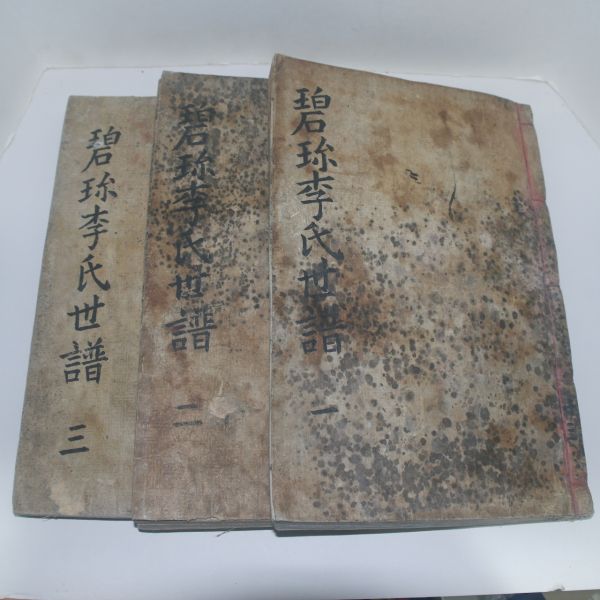 碧珎李氏世譜
一
碧珎李氏世譜
二
碧珎李氏世譜
三